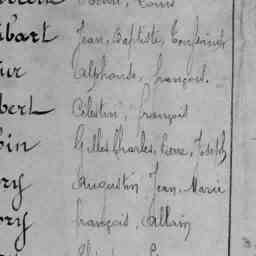 Louis
ibart Jean, Baptiste,
ur Alphonse, françois.
bert Célestin, françois
in Gilles Charles, Joseph
ry Augustin Jean, Marie
ory françois, Allain